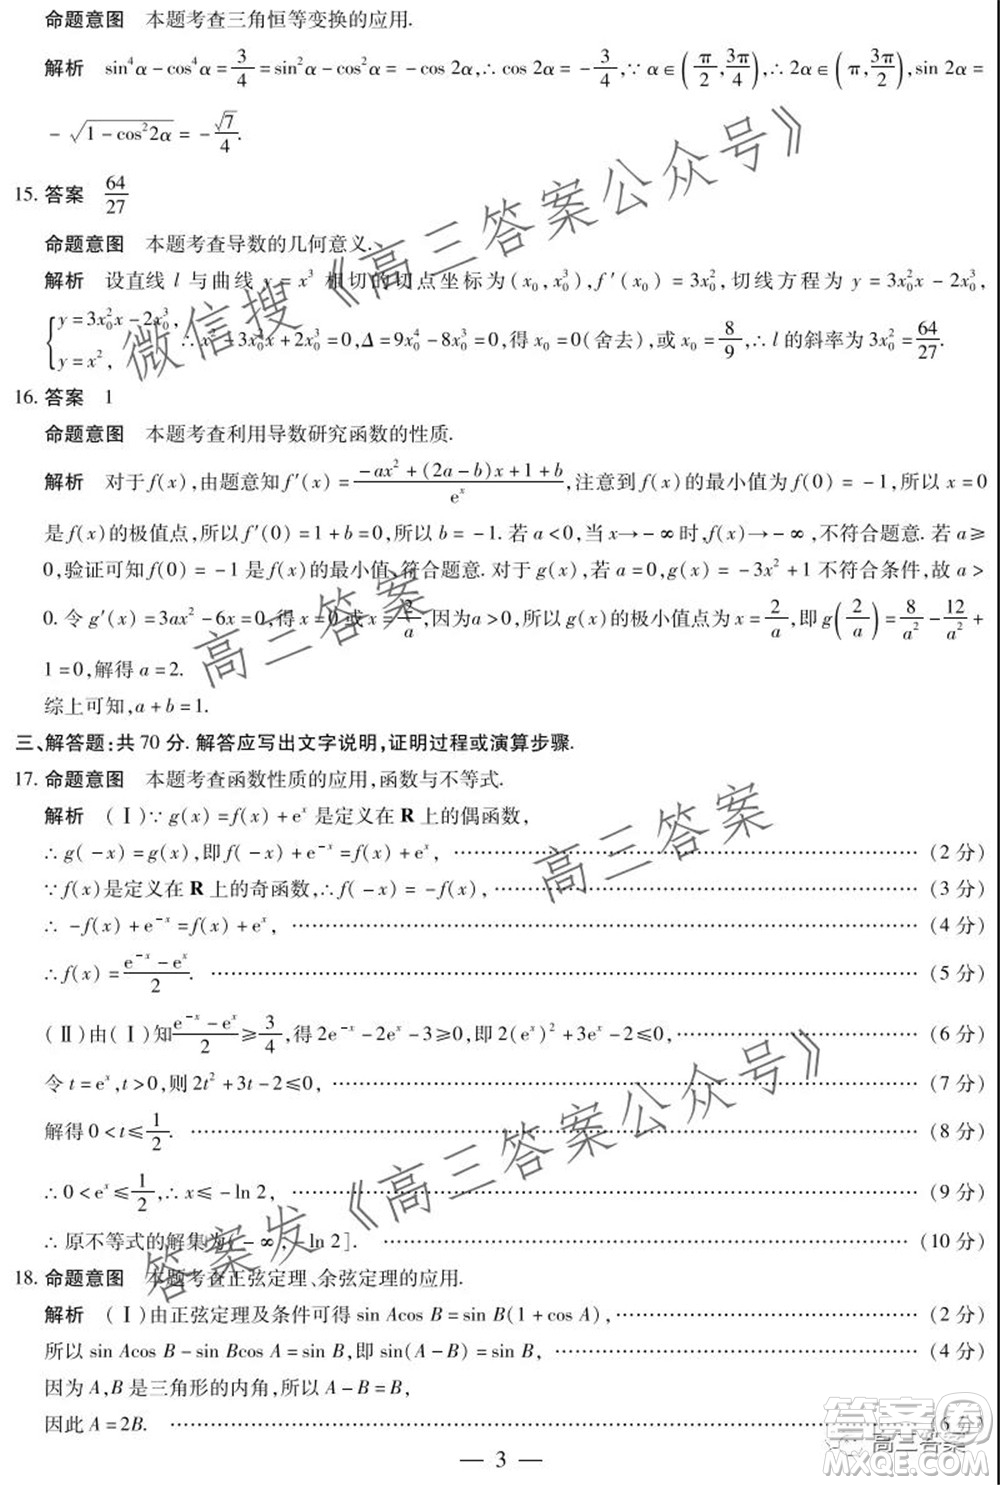 命题意图 本题考查三角恒等变换的应用.
解析 sin⁴α-cos⁴α=3/4=sin²α-cos²α=-cos 2α,∴cos 2α=-3/4,∵α∈(π/2,3π/4),∴2α∈(π,3π/2),sin 2α=
-√(1-cos²2α)=-√7/4.
15. 答案 64/27
命题意图 本题考查导数的几何意义.
解析 设直线 l 与曲线 y=x³ 相切的切点坐标为(x₀,x₀³),f′(x₀)=3x₀²,切线方程为 y=3x₀²x-2x₀³,
{y=3x₀²x-2x₀³, y=x², ∴x²-3x₀²x+2x₀³=0,Δ=9x₀⁴-8x₀³=0,得 x₀=0(舍去),或 x₀=8/9,∴l 的斜率为 3x₀²=64/27.
16. 答案 1
命题意图 本题考查利用导数研究函数的性质.
解析 对于f(x),由题意知f′(x)=(-ax²+(2a-b)x+1+b)/eˣ,注意到f(x)的最小值为f(0)=-1,所以 x=0
是f(x)的极值点,所以f′(0)=1+b=0,所以b=-1.若 a<0,当 x→-∞时,f(x)→-∞,不符合题意.若 a≥
0,验证可知f(0)=-1是f(x)的最小值,符合题意.对于g(x),若a=0,g(x)=-3x²+1不符合条件,故 a>
0.令g′(x)=3ax²-6x=0,得 x=0 或 x=2/a,因为a>0,所以g(x)的极小值点为x=2/a,即g(2/a)=8/a²-12/a²+
1=0,解得a=2.
综上可知,a+b=1.
三、解答题:共70分.解答应写出文字说明,证明过程或演算步骤.
17. 命题意图 本题考查函数性质的应用,函数与不等式.
解析 (Ⅰ)∵g(x)=f(x)+eˣ是定义在R上的偶函数,
∴g(-x)=g(x),即f(-x)+e⁻ˣ=f(x)+eˣ, ……(2分)
∵f(x)是定义在R上的奇函数,∴f(-x)=-f(x), ……(3分)
∴-f(x)+e⁻ˣ=f(x)+eˣ, ……(4分)
∴f(x)=(e⁻ˣ-eˣ)/2. ……(5分)
(Ⅱ)由(Ⅰ)知(e⁻ˣ-eˣ)/2≥3/4,得2e⁻ˣ-2eˣ-3≥0,即2(eˣ)²+3eˣ-2≤0, ……(6分)
令t=eˣ,t>0,则2t²+3t-2≤0, ……(7分)
解得0<t≤1/2. ……(8分)
∴0<eˣ≤1/2,∴x≤-ln 2, ……(9分)
∴原不等式的解集为(-∞,-ln 2]. ……(10分)
18. 命题意图 本题考查正弦定理、余弦定理的应用.
解析 (Ⅰ)由正弦定理及条件可得 sin Acos B=sin B(1+cos A), ……(2分)
所以 sin Acos B-sin Bcos A=sin B,即 sin(A-B)=sin B, ……(4分)
因为A,B是三角形的内角,所以A-B=B,
因此A=2B. ……(6分)
— 3 —
微信搜《高三答案公众号》
高三答案
高三答案
答案发《高三答案公众号》
高三答案
答案圈
MXQE.COM